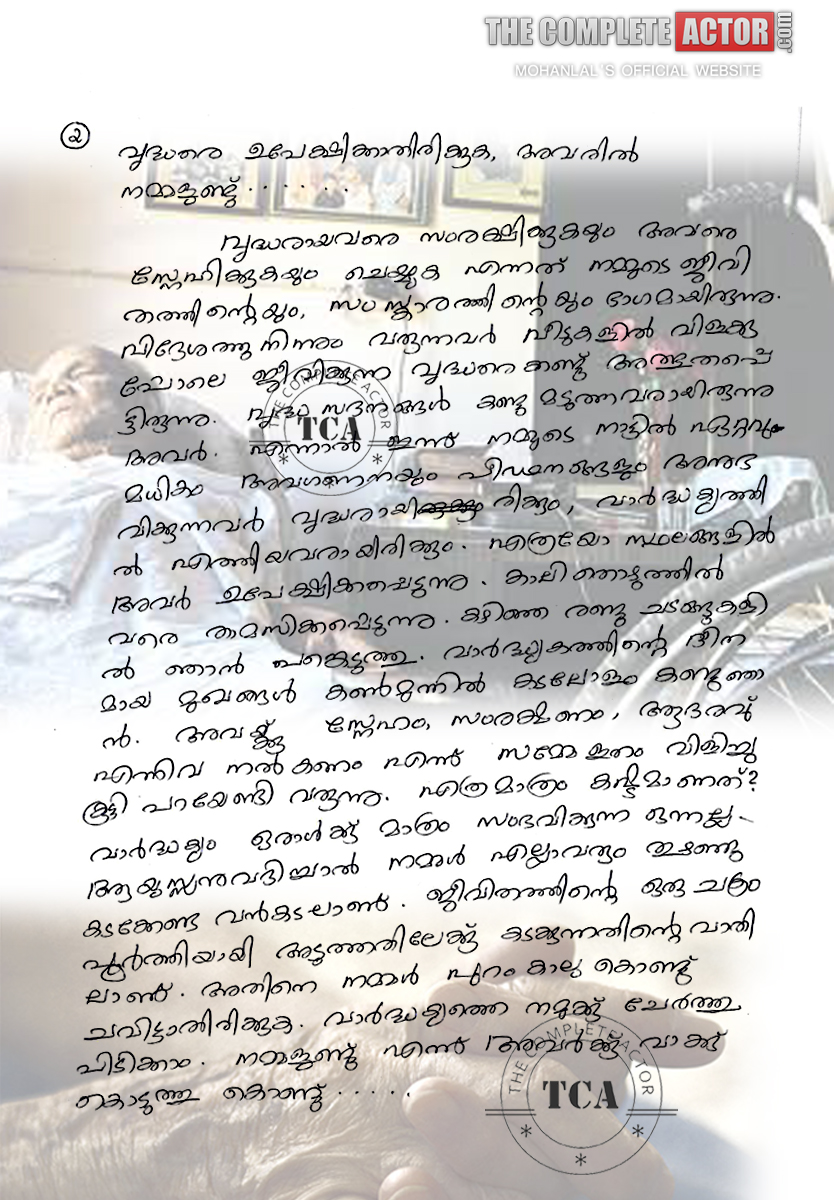 THE COMPLETE ACTOR .com
MOHANLAL'S OFFICIAL WEBSITE
൨
വൃദ്ധരെ ഉപേക്ഷിക്കാതിരിക്കുക, അവരിൽ
നമ്മളുണ്ട്.......
വൃദ്ധരായവരെ സംരക്ഷിക്കുകയും അവരെ
സ്നേഹിക്കുകയും ചെയ്യുക എന്നത് നമ്മുടെ ജീവി
തത്തിന്റെയും, സംസ്ക്കാരത്തിന്റെയും ഭാഗമായിരുന്നു.
വിദേശത്തു നിന്നും വരുന്നവർ വീടുകളിൽ വിളക്കു
പോലെ ജീവിക്കുന്ന വൃദ്ധരെ കണ്ട് അത്ഭുതപ്പെ
ട്ടിരുന്നു. വൃദ്ധ സദനങ്ങൾ കണ്ടു മടുത്തവരായിരുന്നു
അവർ. എന്നാൽ ഇന്ന് നമ്മുടെ നാട്ടിൽ ഏറ്റവും
മധികം അവഗണനയും പീഡനങ്ങളും അനുഭ
വിക്കുന്നവർ വൃദ്ധരായിരിക്കും, വാർദ്ധക്യത്തി
ൽ എത്തിയവരായിരിക്കും. എത്രയോ സ്ഥലങ്ങളിൽ
അവർ ഉപേക്ഷിക്കപ്പെടുന്നു. കാലിതൊഴുത്തിൽ
വരെ താമസിക്കപ്പെടുന്നു. കഴിഞ്ഞ രണ്ടു ചടങ്ങുകളി
ൽ ഞാൻ പങ്കെടുത്തു. വാർദ്ധക്യകത്തിന്റെ ദീന
മായ മുഖങ്ങൾ കൺമുന്നിൽ കടലോളം കണ്ടു ഞാ
ൻ. അവർക്കു സ്നേഹം, സംരക്ഷണം, ആദരവ്
എന്നിവ നൽകണം എന്ന് സമ്മേളനം വിളിച്ചു
കൂട്ടി പറയേണ്ടി വരുന്നു. എത്രമാത്രം കഷ്ടമാണത്?
വാർദ്ധക്യം ഒരാൾക്ക് മാത്രം സംഭവിക്കുന്ന ഒന്നല്ല -
ആയുസ്സനുവദിച്ചാൽ നമ്മൾ എല്ലാവരും തുഴഞ്ഞു
കടക്കേണ്ട വൻകടലാണ്. ജീവിതത്തിന്റെ ഒരു ചക്രം
പൂർത്തിയായി അടുത്തതിലേക്ക് കടക്കുന്നതിന്റെ വാതി
ലാണ്. അതിനെ നമ്മൾ പുറംകാലു കൊണ്ട്
ചവിട്ടാതിരിക്കുക. വാർദ്ധക്യത്തെ നമുക്ക് ചേർത്തു
പിടിക്കാം. നമ്മളുണ്ട് എന്ന് അവർക്ക് വാക്ക്
കൊടുത്തു കൊണ്ട്......
THE COMPLETE ACTOR
TCA
THE COMPLETE ACTOR
TCA